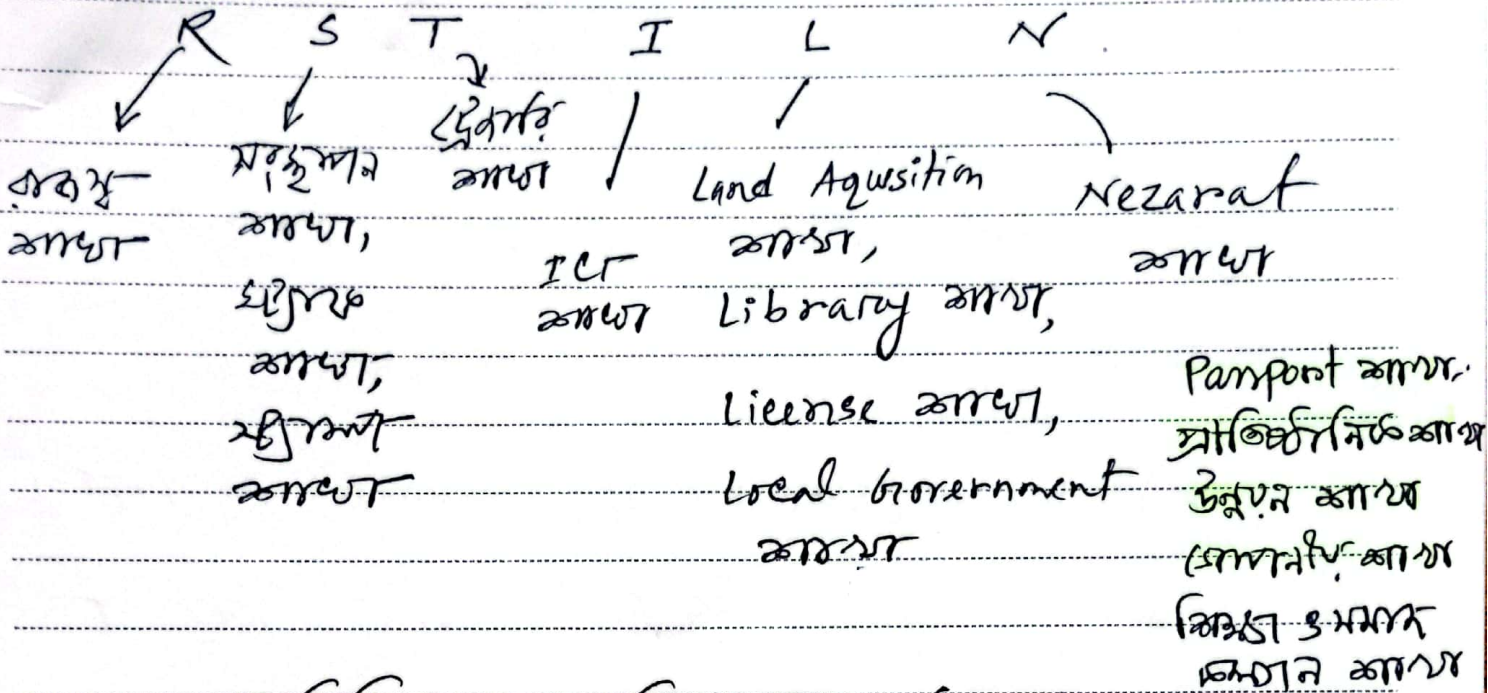 R S T I L N
ট্রেজারি
শাখা
রাজস্ব
শাখা
সংস্থাপন
শাখা,
শাখা,
শাখা
ICT
শাখা
Land Aqusition
শাখা,
Library শাখা,
License শাখা,
Local Government
শাখা
Nezarat
শাখা
Passport শাখা
প্রাতিষ্ঠানিক শাখা
উন্নয়ন শাখা
গোপনীয় শাখা
শিক্ষা ও
শাখা